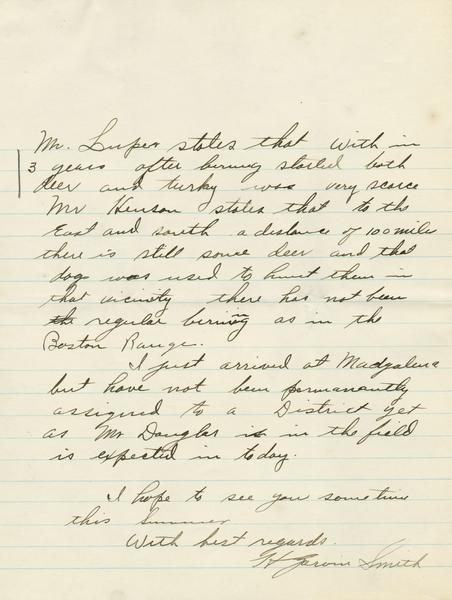 Mr. Luper states that with in
3 years after burning started both
deer and turky was very scarce
Mr Henson states that to the
East and south a distance of 100 mile
there is still some deer and that
dog was used to hunt them in
that vicinity there has not been
the regular burning as in the
Boston Range.
I just arrived at Madgalena
but have not been permanantly
assigned to a District yet
as Mr Douglas is in the field
is expected in today.
I hope to see you sometime
this Summer
With best regards.
Smith